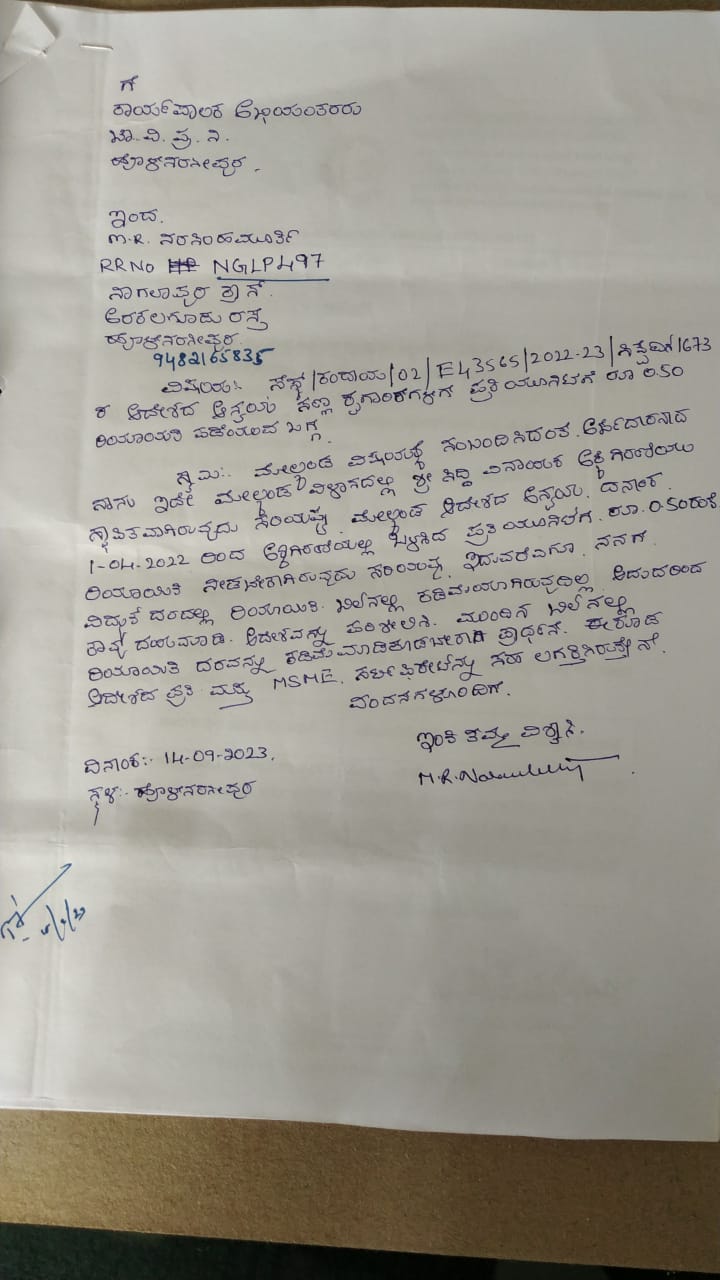 ಗೆ
ಕಾರ್ಯಪಾಲಕ ಅಭಿಯಂತರರು
ಚಾ. ವಿ. ಪ್ರ. ನಿ.
ಹೊಳೆನರಸೀಪುರ.
ಇಂದ.
M.R. ನರಸಿಂಹಮೂರ್ತಿ
RR NO NGLP497
ನಾಗಲಾಪುರ ಕ್ರಾಸ್.
ಅರಕಲಗೂಡು ರಸ್ತೆ
ಹೊಳೆನರಸೀಪುರ.
9482165835
ವಿಷಯ:- ಸೆಸ್ಕ್/ಕಂದಾಯ/02/E43565/2022-23/ 1673
ರ ಆದೇಶದ ಅನ್ವಯ ಸಣ್ಣ ಕೈಗಾರಿಕೆಗಳಿಗೆ ಪ್ರತಿ ಯೂನಿಟಿಗೆ ರೂ 0.50
ರಿಯಾಯಿತಿ ಪಡೆಯುವ ಬಗ್ಗೆ.
ಸ್ವಾಮಿ:. ಮೇಲ್ಕಂಡ ವಿಷಯಕ್ಕೆ ಸಂಬಂದಿಸಿದಂತೆ. ಅರ್ಜಿದಾರನಾದ
ನಾನು ಇದೇ ಮೇಲ್ಕಂಡ ವಿಳಾಸದಲ್ಲಿ ಶ್ರೀ ಸಿದ್ದಿ ವಿನಾಯಕ ಅಕ್ಕಿಗಿರಣಿಯು
ಸ್ಥಾಪಿತವಾಗಿರುವುದು ಸರಿಯಷ್ಟೆ. ಮೇಲ್ಕಂಡ ಆದೇಶದ ಅನ್ವಯ. ದಿನಾಂಕ.
1-04-2022 ರಿಂದ ಅಕ್ಕಿಗಿರಣಿಯಲ್ಲಿ ಬಳಸಿದ ಪ್ರತಿ ಯೂನಿಟಿಗೆ. ರೂ. 0.50ರಂತೆ
ರಿಯಾಯಿತಿ ನೀಡಬೇಕಾಗಿರುವುದು ಸರಿಯಷ್ಟೆ. ಇದುವರೆವಿಗೂ. ನನಗೆ
ವಿದ್ಯುತ್ ದರದಲ್ಲಿ ರಿಯಾಯಿತಿ. ಬಿಲ್‌ನಲ್ಲಿ ಕಡಿಮೆಯಾಗಿರುವುದಿಲ್ಲ ಆದುದರಿಂದ
ತಾವು ದಯಮಾಡಿ. ಆದೇಶವನ್ನು ಪರಿಶೀಲಿಸಿ. ಮುಂದಿನ ಬಿಲ್‌ನಲ್ಲಿ
ರಿಯಾಯಿತಿ ದರವನ್ನು ಕಡಿಮೆ ಮಾಡಿಕೊಡಬೇಕಾಗಿ ಪ್ರಾರ್ಥನೆ. ಈ ಕೂಡ
ಆದೇಶದ ಪ್ರತಿ ಮತ್ತು MSME. ಸರ್ಟಿಫಿಕೇಟ್‌ನ್ನು ಸಹ ಲಗತ್ತಿಸಿರುತ್ತೇನೆ.
ವಂದನೆಗಳೊಂದಿಗೆ.
ದಿನಾಂಕ:- 14-09-2023.
ಇಂತಿ ತಮ್ಮ ವಿಶ್ವಾಸಿ.
ಸ್ಥಳ:- ಹೊಳೆನರಸೀಪುರ